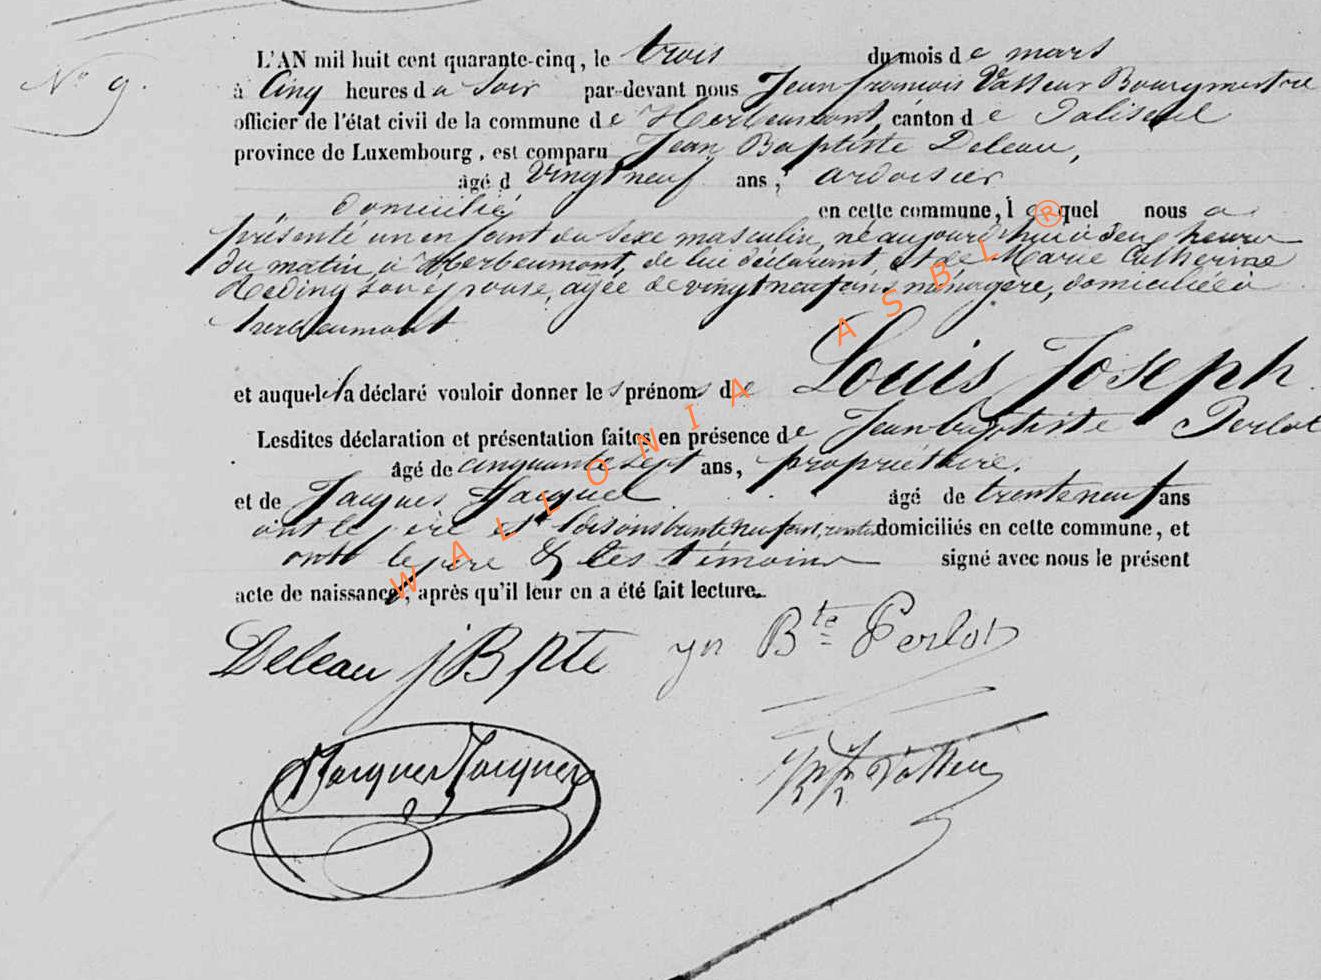 N° 9.
L'AN mil huit cent quarante-cinq, le trois du mois de mars
à Cinq heures du Soir par-devant nous Jean françois Vasseur Bourgmestre
officier de l'état civil de la commune de Herbeumont, canton de Paliseul
province de Luxembourg, est comparu Jean Baptiste Deleau,
âgé d vingt neuf ans, ardoisier
Domicilié en cette commune, lequel nous a
présenté un enfant du sexe masculin, né aujourd'hui à deux heures
du matin, à Herbeumont, de lui déclarant, et de Marie Catherine
Heding son épouse, agée de vingt neuf ans ménagère, domiciliée à
herbeumont
et auquel il a déclaré vouloir donner les prénoms de Louis Joseph
Lesdites déclaration et présentation faites en présence de Jean baptiste Perlot
âgé de cinquante sept ans, propriétaire.
et de Jacques Jacques âgé de trente neuf ans
domiciliés en cette commune, et
ont le père & les témoins signé avec nous le présent
acte de naissance, après qu'il leur en a été fait lecture.
Deleau j B pte Bte Perlot
Jacques Jacques Vasseur
WALLONIA ASBL ®